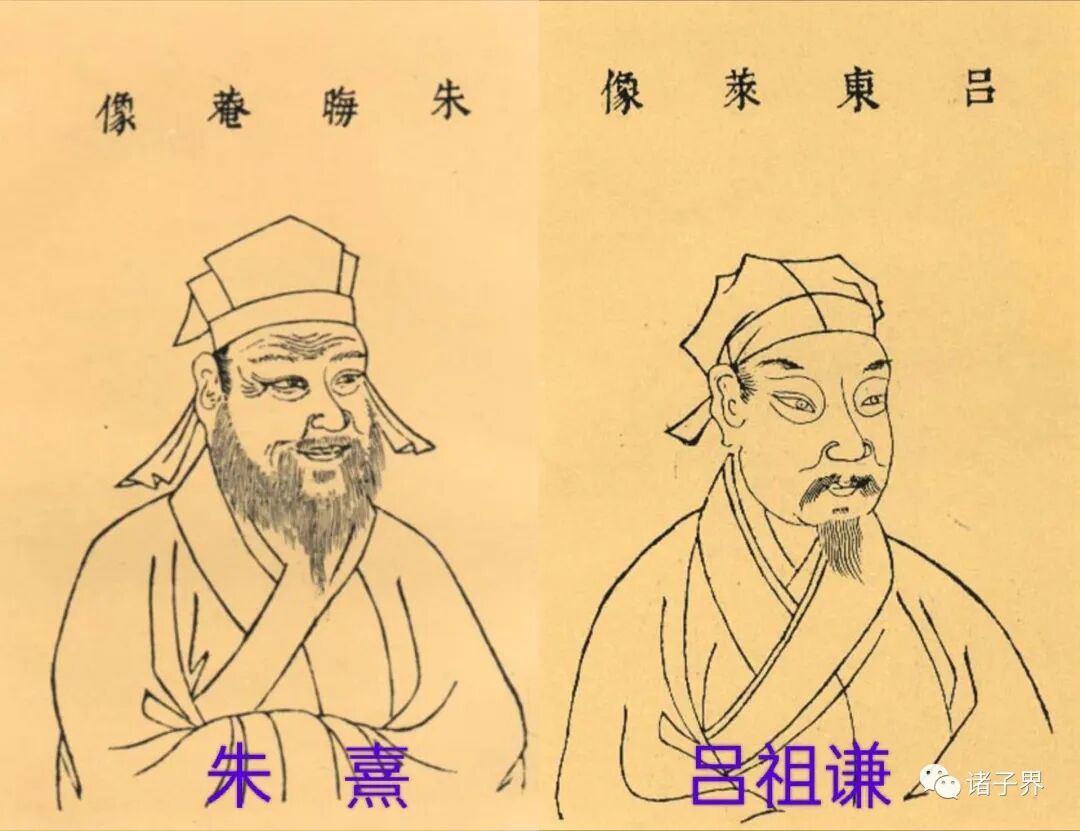 朱晦菴像
吕東萊像
朱 熹
吕祖谦
诸子界